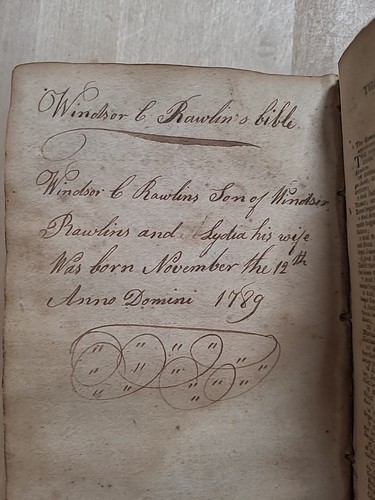 Windsor C Rawlin's bible
Windsor C Rawlins Son of Windsor
Rawlins and Lydia his wife
Was born November the 12th
Anno Domini 1789